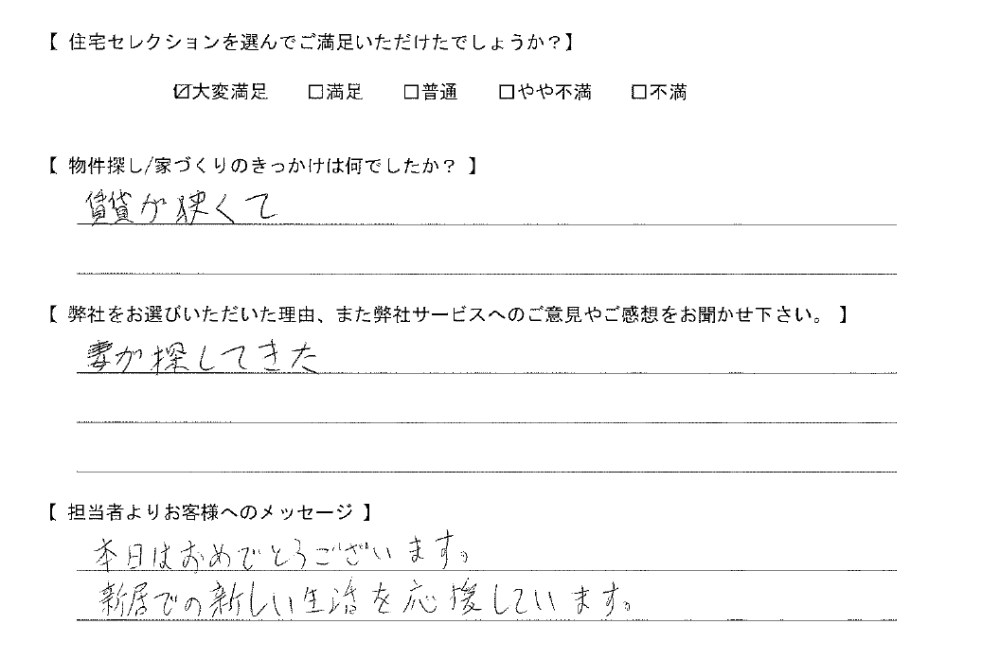 【 住宅セレクションを選んでご満足いただけたでしょうか？】
☑大変満足 □満足 □普通 □やや不満 □不満
【 物件探し/家づくりのきっかけは何でしたか？ 】
賃貸が狭くて
【 弊社をお選びいただいた理由、また弊社サービスへのご意見やご感想をお聞かせ下さい。 】
妻が探してきた
【 担当者よりお客様へのメッセージ 】
本日はおめでとうございます。
新居での新しい生活を応援しています。